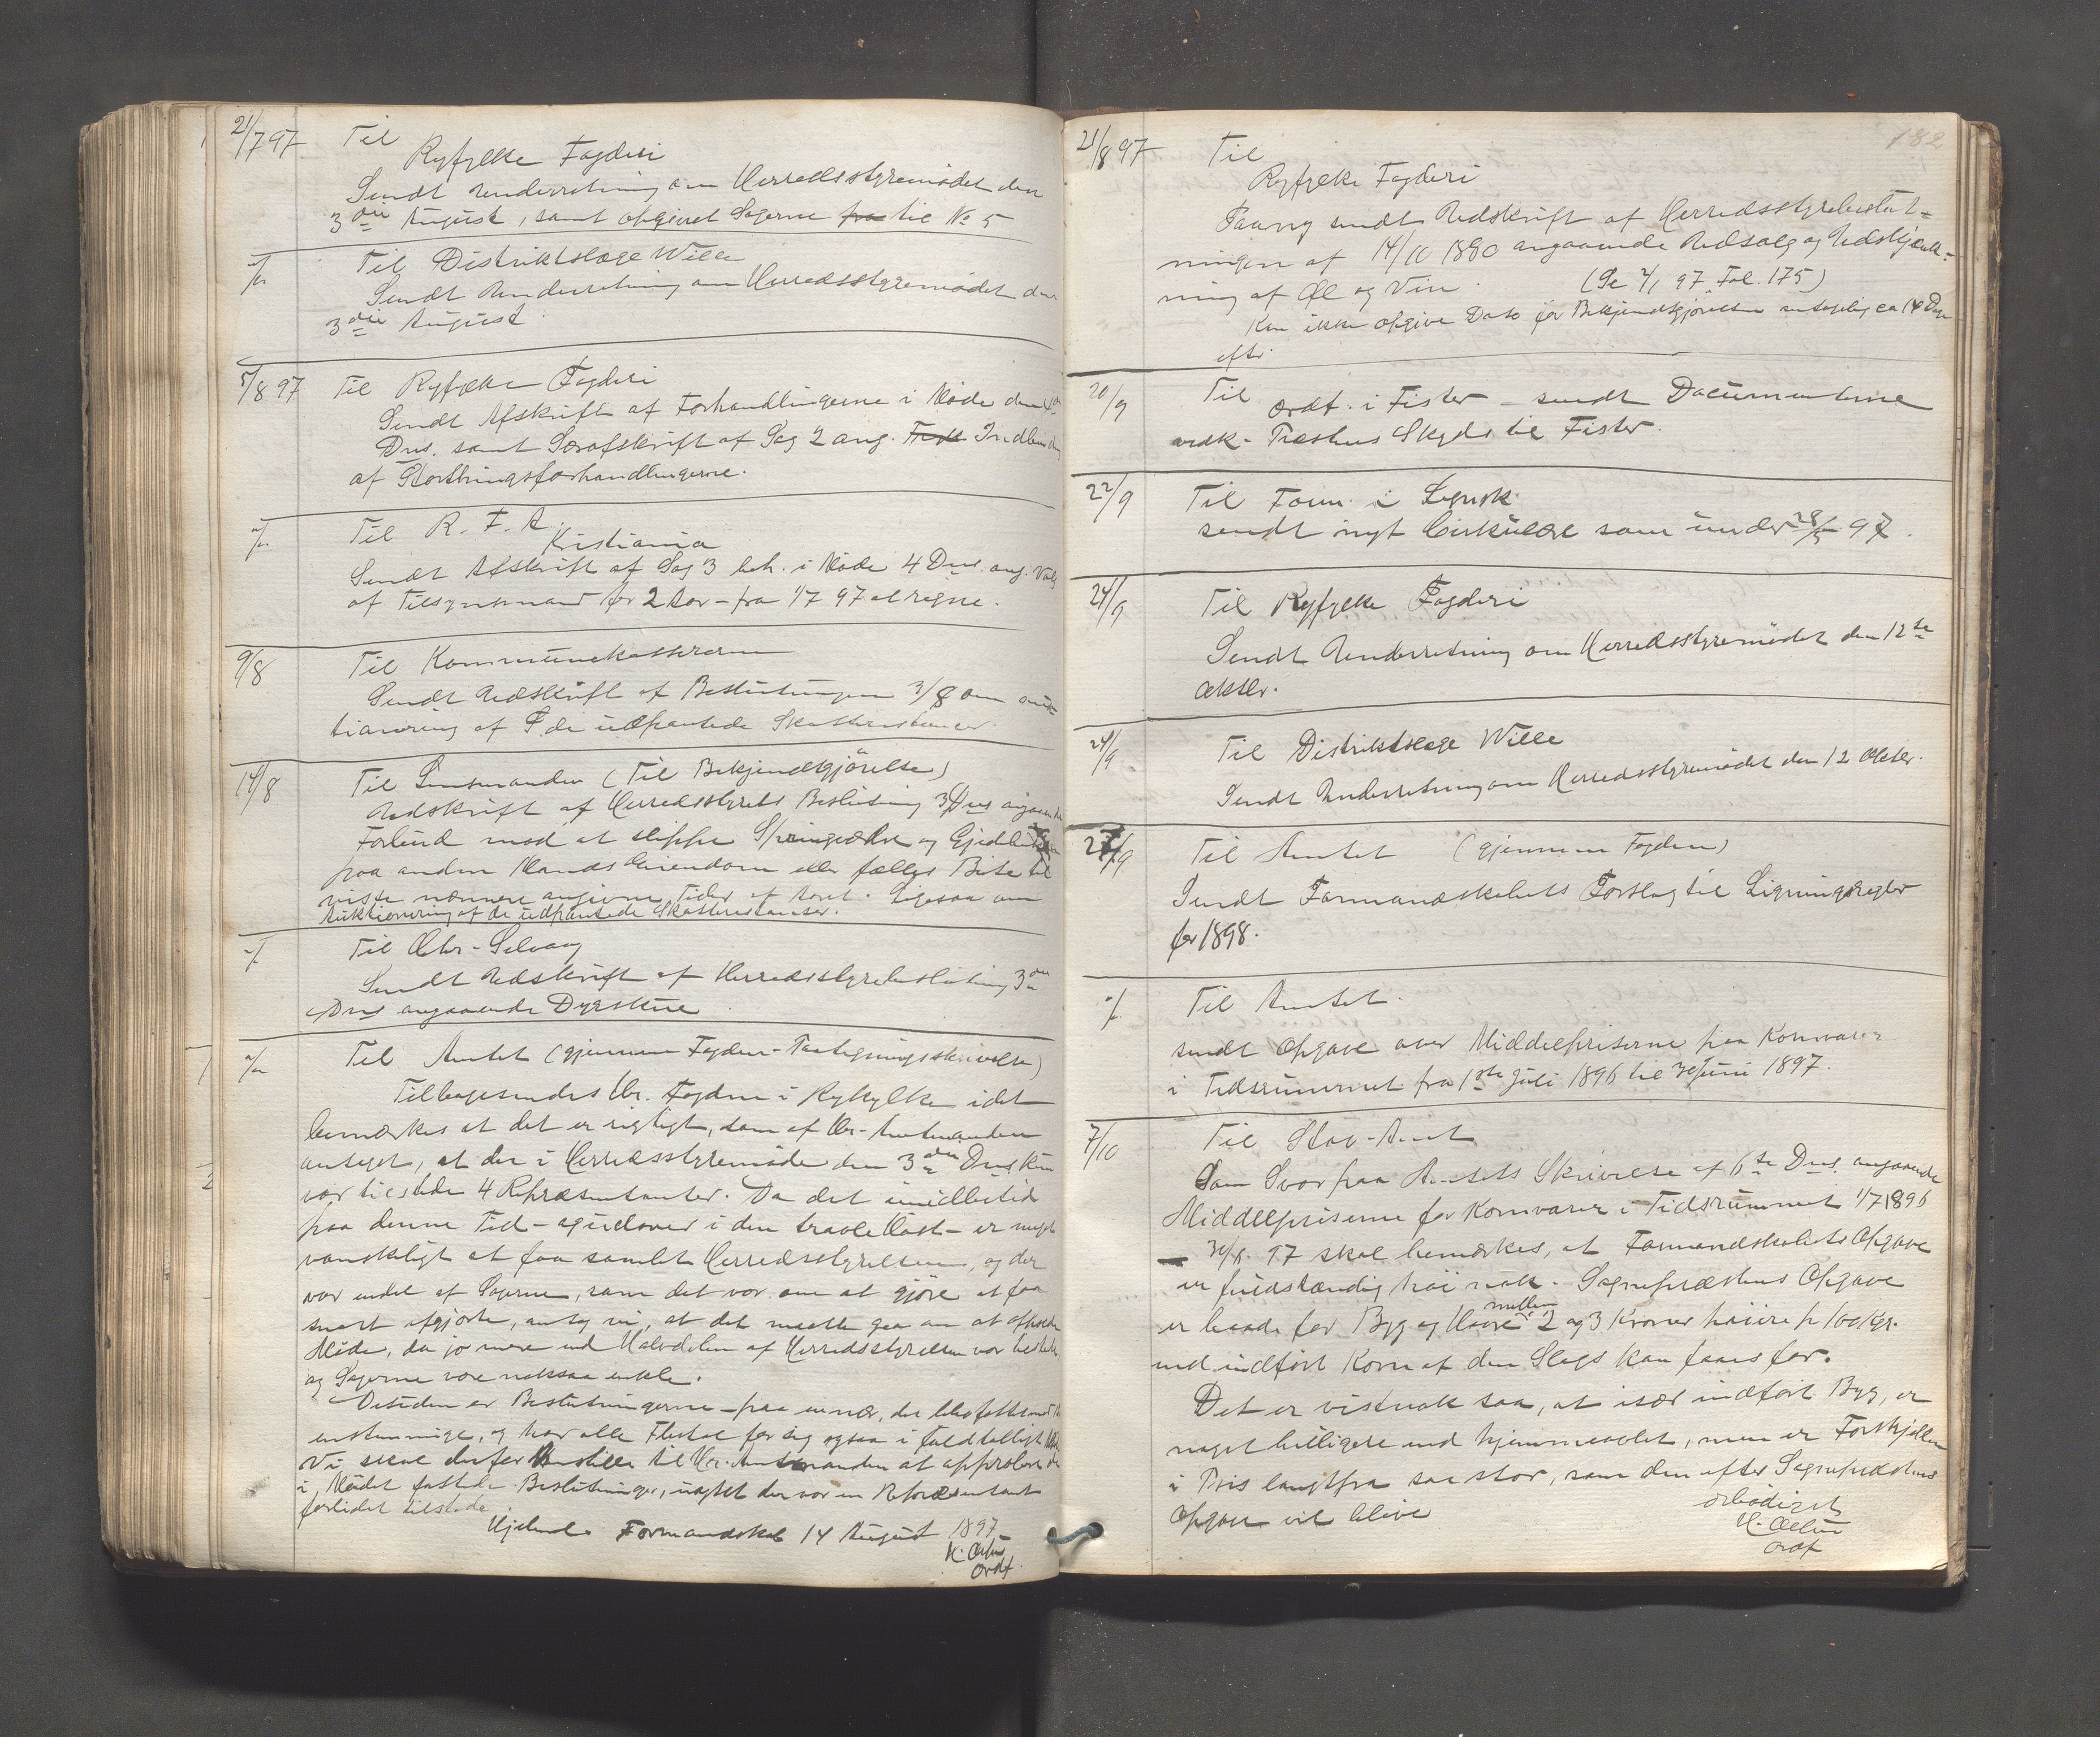 21/7 97
Til
Ryfylke Fogderi
Sendt Underretning om Herredsstyremødet den
3die August, samt opgivet Sagerne fra til № 5
Til Distriktslæge Wille
Sendt Underretning om Herredsstyremødet den
3die August
5/8 97 Til Ryfylke Fogderi
Sendt Afskrift af Forhandlingerne i Møde den
Dns. samt Særafskrift af Sag 2 ang. Indbinding
af Storthingsforhandlingerne.
Til R. F. A.
Kristiania
Sendt Afskrift af Sag 3 beh. i Møde 4 Dns. ang. Valg
af Tilsynsmand for 2 Aar - fra 1/7 97 at regne.
9/8 Til Kommunekassereren
Sendt Udskrift af Beslutningen 3/8 om auk-
tionering af de udpantede Skatterestancer
14/8 Til Lensmanden (Til Bekjendtgjørelse)
Udskrift af Herredsstyrets Beslutning 3 Dns angaaende
Forbud mod at slippe og
paa anden Mands Eiendom eller fælles Beite til
visse nærmere angivne Tider af Aaret. Ligesaa om
Auktionering af de udpantede Skatterestanser.
Til Selvaag
Sendt Udskrift af Herredsstyrebeslutning 3die
Dns angaaende Dyrskue
Til Amtet (gjennem Fogden - Paategningsskrivelse)
Tilbagesendes Hr. Fogden i Ryfylke idet
bemærkes at det er rigtigt, som af Hr. Amtmanden
antaget, at der i Herredsstyremøde den 3die Dns kun
var tilstede 4 Repræsentanter. Da det imidlertid
paa denne Tid - i den travle Høst - er meget
vanskeligt at faa samlet Herredsstyrelsen, og der
var endel af Sagerne, som det var om at gjøre at faa
snart afgjorte, antog vi, at det maatte gaa an at afholde
Møde, da jo mere end Halvdelen af Herredsstyrelsen var tilstede
og Sagerne vare noksaa enkle.
Desuden er Beslutningerne - paa en nær,
enstemmige, og har alle Flertal for sig ogsaa i fuldtalligt
Vi skal derfor henstille til Hr. Amtmanden at approbere de
i Mødet fattede Beslutninger, uagtet der var en Repræsentant
forlidet tilstede
Hjelmelands Formandskab 14 August 1897
Ordf.
182
21/8 97 Til
Ryfylke Fogderi
Paany sendt Udskrift af Herredsstyrebeslut-
ningen af 14/10 1890 angaaende Udsalg og Udskjænk-
ning af Øl og Vin. (Se 97 Fol. 175)
Kan ikke opgive Dato for Bekjendtgjørelsen antagelig ca 14 Dage
efter.
20/9 Til Ordf. i Fister - sendt Documenterne
vedk. Præstens Skyds til Fister.
22/9 Til Form. i
sendt nyt Cirkulære som under 28/5 97.
24/9 Til Ryfylke Fogderi
Sendt Underretning om Herredsstyremødet den 12te
Oktbr.
24/9 Til Distriktslæge Wille
Sendt Underretning om Herredsstyremødet den 12 Oktbr.
27/9 Til Amtet (gjennem Fogden)
Sendt Formandskabets Forslag til Ligningsregler
for 1898.
Til Amtet.
sendt Opgave over Middelpriserne paa Kornvarer
i Tidsrummet fra 1ste Juli 1896 til 30 Juni 1897.
7/10 Til Stav. Amt
Som Svar paa Amtets Skrivelse af 6te Dns. angaaende
Middelpriserne for Kornvarer i Tidsrummet 1/7 1896
- 30/6. 97 skal bemærkes, at Formandskabets Opgave
er fuldstændig høi nok. Sognepræstens Opgave
er baade for Byg og Havre mellem 2 og 3 Kroner høiere pr 100 Kgr.
end indført Korn af den Slags kan faaes for.
Det er vistnok saa, at især indført Byg, er
noget billigere end hjemmeavlet, men er Forskjellen
i Pris langtfra saa stor, som den efter Sognepræstens
Opgave vil blive
Ærbødigst
Ordf